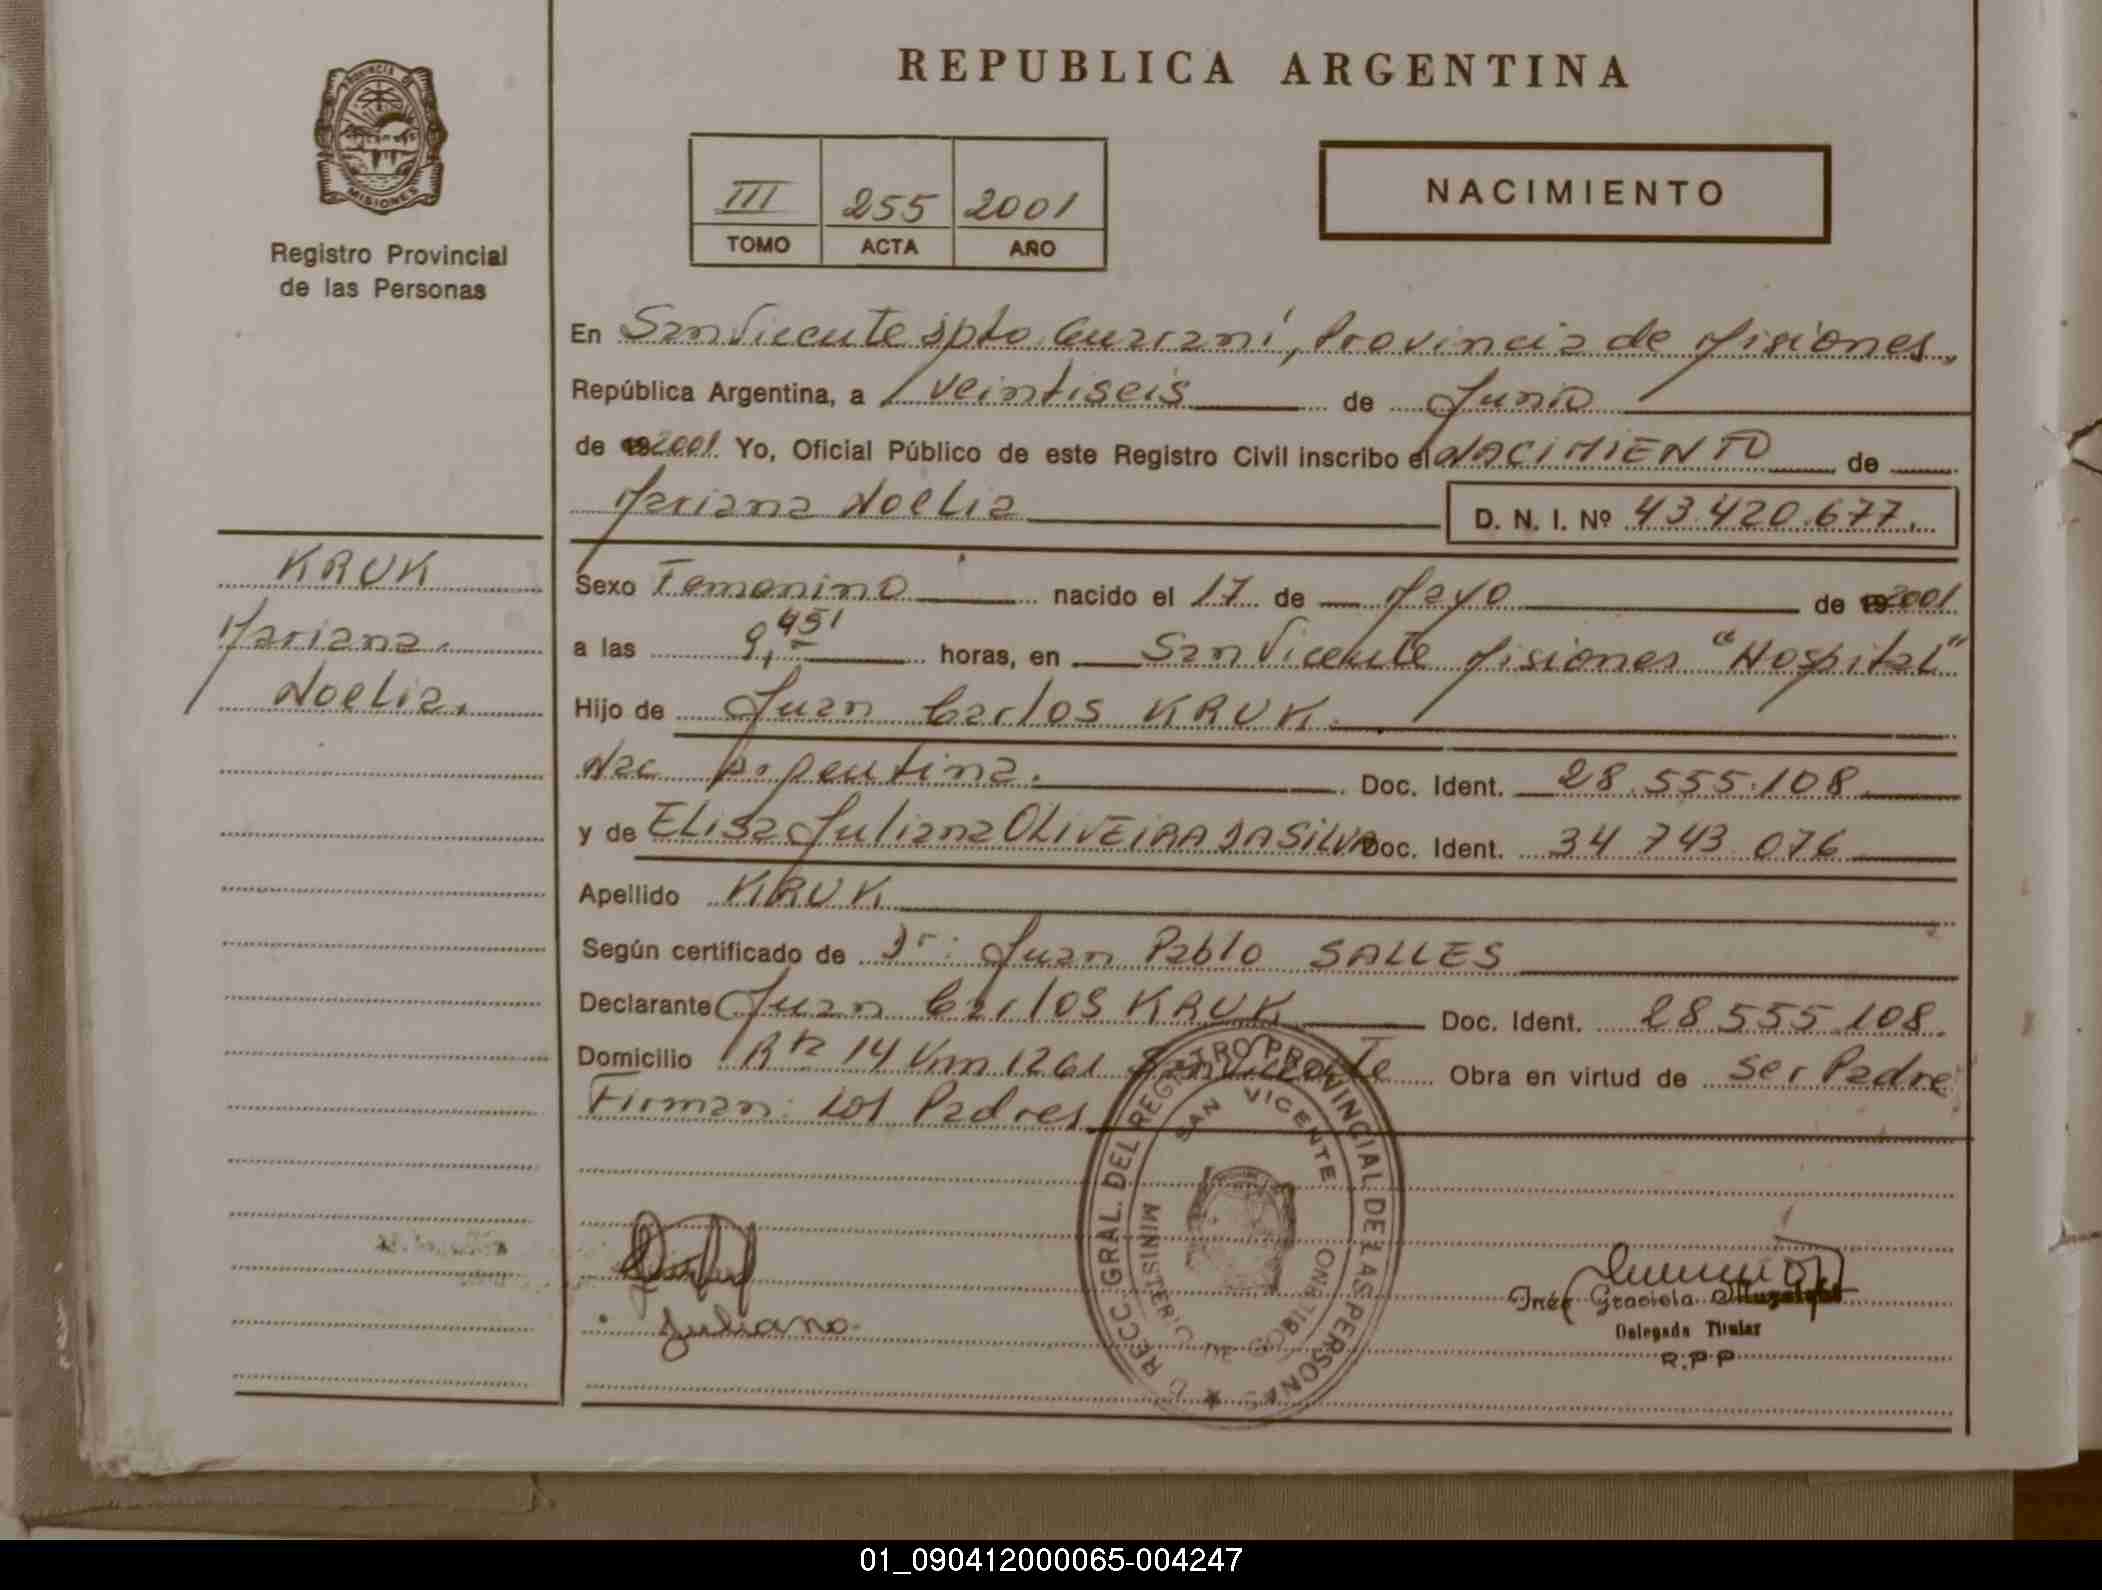 REPUBLICA ARGENTINA
PROVINCIA DE
MISIONES
Registro Provincial
de las Personas
III 255 2001
TOMO ACTA AÑO
NACIMIENTO
En San Vicente Dpto Guaraní, Provincia de Misiones,
República Argentina, a veintiseis de Junio
de 192001 Yo, Oficial Público de este Registro Civil inscribo el NACIMIENTO de
Mariana Noelia D. N. I. Nº 43.420.677.
KRUK
Mariana.
Noelia.
Sexo Femenino nacido el 17 de Mayo de 192001
a las 9,45' horas, en San Vicente Misiones "Hospital"
Hijo de Juan Carlos KRUK.
Nac Argentina. Doc. Ident. 28.555.108
y de Elisa Juliana OLIVEIRA DA SILVA Doc. Ident. 34 743 076
Apellido KRUK
Según certificado de Dr: Juan Pablo SALLES
Declarante Juan Carlos KRUK Doc. Ident. 28 555.108.
Domicilio Rta 14 Km 1261 San Vicente Obra en virtud de ser Padre
Firman: Los Padres
DIRECC. GRAL. DEL REGISTRO PROVINCIAL DE LAS PERSONAS
SAN VICENTE
MINISTERIO DE GOBIERNO
Juliana.
Inés Graciela
Delegada Titular
R.P.P
01_090412000065-004247